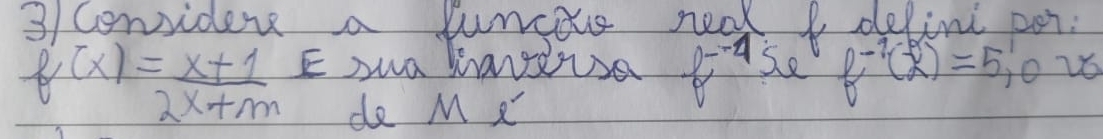 3) Considere a função real f defini por:
f(x) = x+1/2x+m E sua inversa f⁻¹ Se f⁻¹(2) = 5, o va
de M é